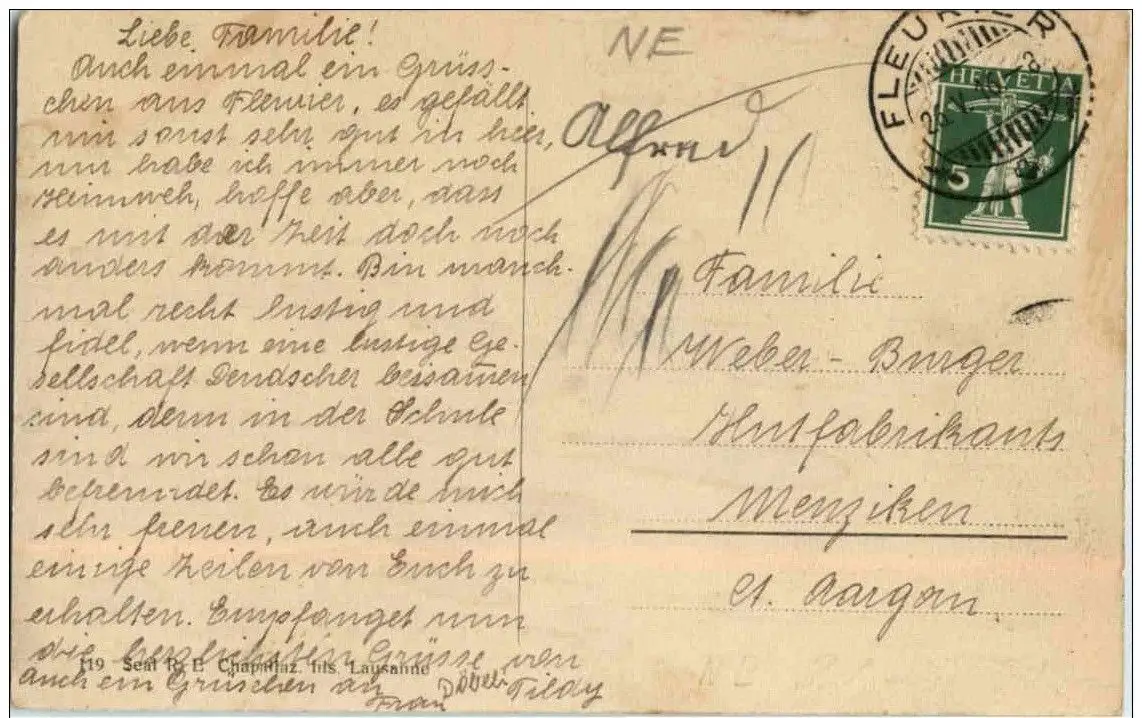 Liebe Familie!
Auch einmal ein Grüss-
chen aus Fleurier, es gefällt
mir sonst sehr gut in hier,
nur habe ich immer noch
Heimweh, hoffe aber, dass
es mit der Zeit doch noch
anders kommt. Bin manch-
mal recht lustig und
fidel, wenn eine lustige Ge-
sellschaft Deudscher beisammen
sind, denn in der Schule
sind wir schon alle gut
befreundet. Es würde mich
sehr freuen, auch einmal
einige Zeilen von Euch zu
erhalten. Empfanget nun
die herzlichsten Grüsse von
Auch ein Grüschen an Tildy
Frau Döbeli
119 Seal R. E. Chapallaz fils Lausanne
NE
Alfred
FLEURIER
HELVETIA
5
Familie
Weber-Burger
Hutfabrikants
Menziken
Ct. Aargau